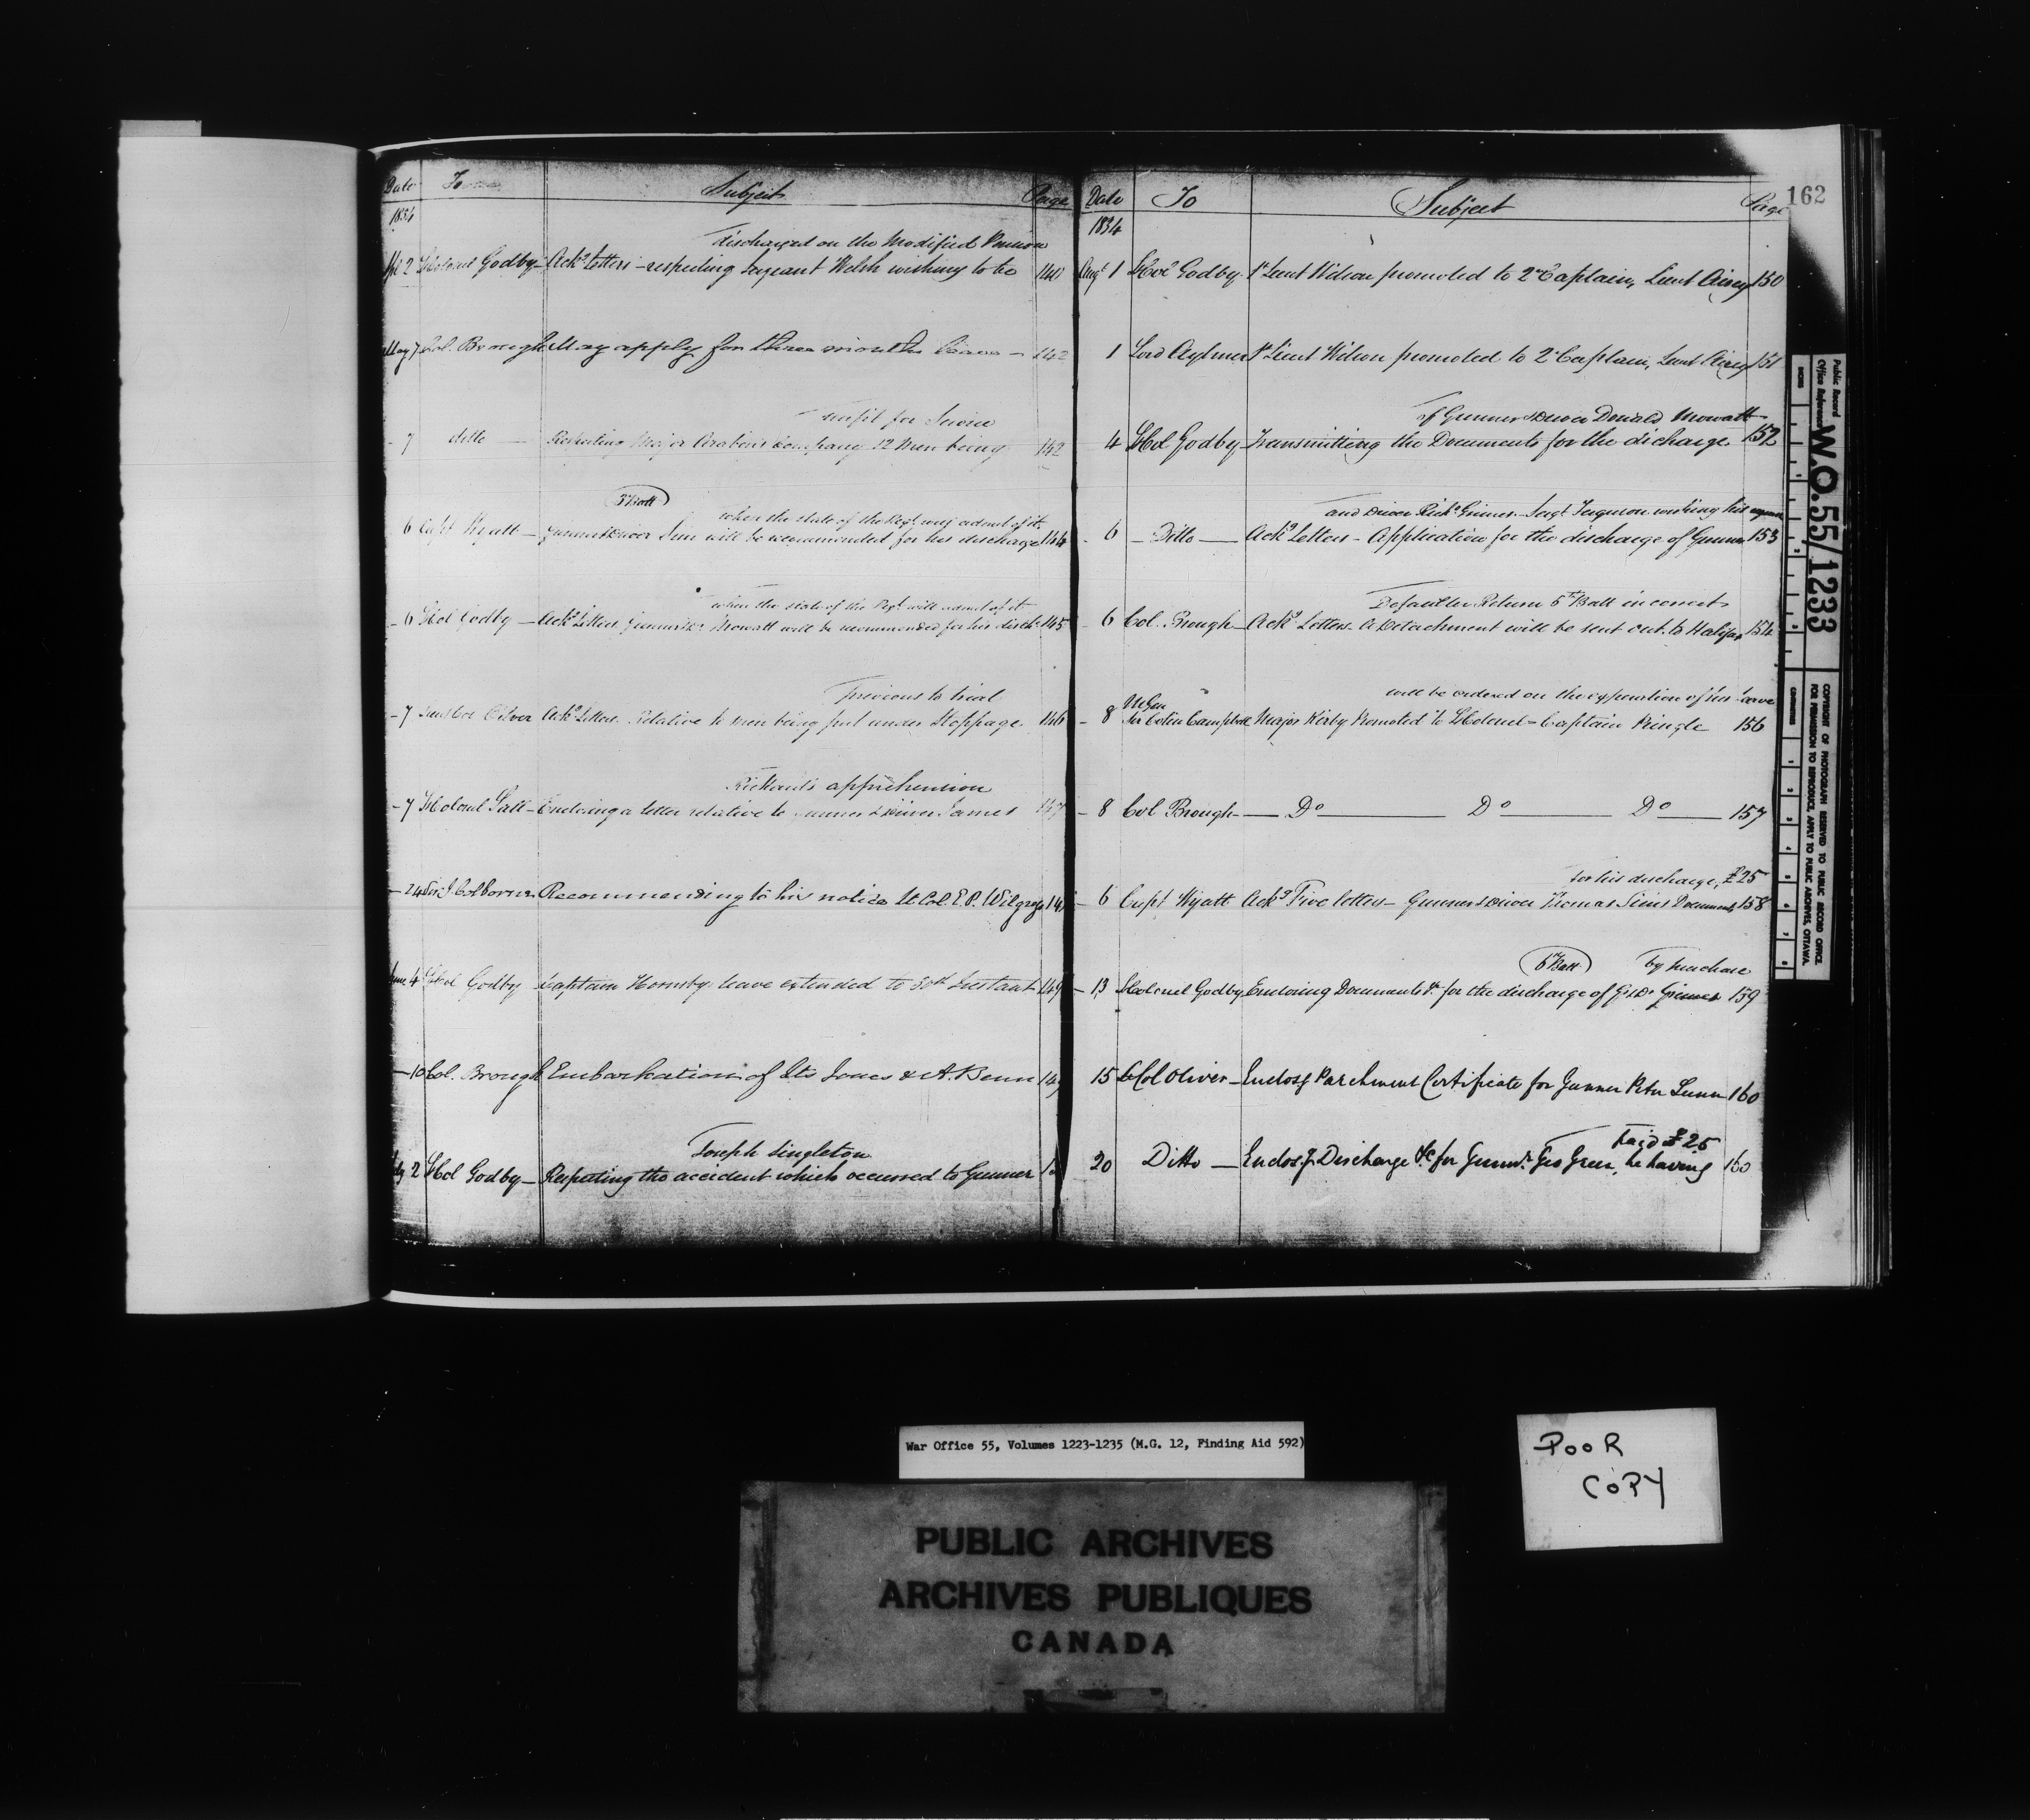 Date To Subject Page
1834
discharged on the Modified Pension
2 LtColonel Godby - Ackg Letters - respecting Sergeant Welsh wishing to be 140
May 7 Col. Brough May apply for three months leave - 142
unfit for Service
- 7 ditto - Respecting Major Arabin's Company 12 Men being 142
when the state of the Regt may admit of it
6 Capt Wyatt - Gunner & Driver Sim will be recommended for his discharge 144
when the state of the Regt will admit of it
- 6 LtCol Godby - Ackg Letters Gunner & Dr Mowatt will be recommended for his disch. 145
previous to trial
- 7 Lieut Col Oliver Ackg Letters Relative to men being put under Stoppage 146
Rickard's apprehension
- 7 LtColonel Salt - Enclosing a letter relative to Gunner & Driver James 147
- 24 Sir J. Colborne Recommending to his notice Lt Col. E. P. Wilgress
June 4 LtCol Godby Captain Hornsby leave extended to 30th Instant 149
- 10 Col. Brough Embarkation of Lts Jones & A. Benn 149
Joseph Singleton
July 2 LtCol Godby - Respecting the accident which occurred to Gunner
Date To Subject Page
162
1834
Augt 1 LtCol Godby - 1st Lieut Wilson promoted to 2nd Captain, Lieut Airey 150
1 Lord Aylmer 1st Lieut Wilson promoted to 2nd Captain, Lieut Airey 151
of Gunner & Driver Donald Mowatt
4 LtCol Godby - Transmitting the Documents for the dicharge 152
and Driver Richd Grimes - Sergt Ferguson wishing his
- 6 - Ditto - Ackg Letters - Application for the discharge of Gunner 153
Defaulter Return 5th Batt incorrect
- 6 Col. Brough - Ackg Letters - A Detachment will be sent out to Halifax 154
will be ordered on the expiration of his leave
- 8 M Gen Sir Colin Campbell Major Kirby Promoted to LtColonel - Captain Pringle 156
- 8 Col Brough - Do Do Do 157
for his discharge, £25
- 6 Capt Wyatt Ackg Five letters - Gunner & Driver Thomas Sims Documents 158
6th Batt by purchase
- 13 LtColonel Godby Enclosing Documents &c for the discharge of G & Dr Grimes 159
15 LtCol Oliver - Enclosg Parchment Certificate for Gunner Peter Lunn 160
paid £25
20 Ditto - Enclosg Discharge &c for Gunnr Geo Green, he having 160
Public Record Office Reference
W.O.55/1233
INCHES
CENTIMETRES
COPYRIGHT OF PHOTOGRAPH RESERVED TO PUBLIC RECORD OFFICE.
FOR PERMISSION TO REPRODUCE, APPLY TO PUBLIC ARCHIVES, OTTAWA.
War Office 55, Volumes 1223-1235 (M.G. 12, Finding Aid 592)
POOR
COPY
PUBLIC ARCHIVES
ARCHIVES PUBLIQUES
CANADA